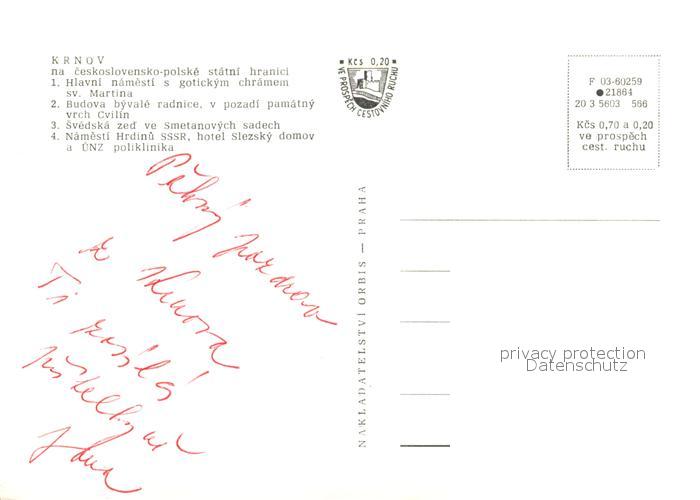 KRNOV
na československo-polské státní hranici
1. Hlavní náměstí s gotickým chrámem
sv. Martina
2. Budova bývalé radnice, v pozadí památný
vrch Cvilín
3. Švédská zeď ve Smetanových sadech
4. Náměstí Hrdinů SSSR, hotel Slezský domov
a ÚNZ poliklinika
Kčs 0,20
VE PROSPĚCH CESTOVNÍHO RUCHU
F 03-60259
21864
20 3 5603 566
Kčs 0,70 a 0,20
ve prospěch
cest. ruchu
NAKLADATELSTVÍ ORBIS — PRAHA
Pěkný pozdrav
z Krnova
Ti zasílá
Jana
privacy protection
Datenschutz